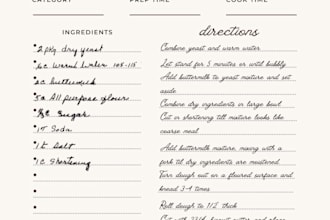 CATEGORY PREP TIME COOK TIME
INGREDIENTS
2 pkg dry yeast
Warm Water 105-115
Buttermilk
All purpose flour
Sugar
1T Soda
1T Salt
1C Shortening
directions
Combine yeast and warm water
Let stand for 5 minutes or until bubbly
Add buttermilk to yeast mixture and set
aside
Combine dry ingredients in large bowl
Cut in shortening till mixture looks like
coarse meal
Add buttermilk mixture, mixing with a
fork til dry ingredients are moistened
Turn dough out on a floured surface and
knead 3-4 times
Roll dough to 1/2" thick